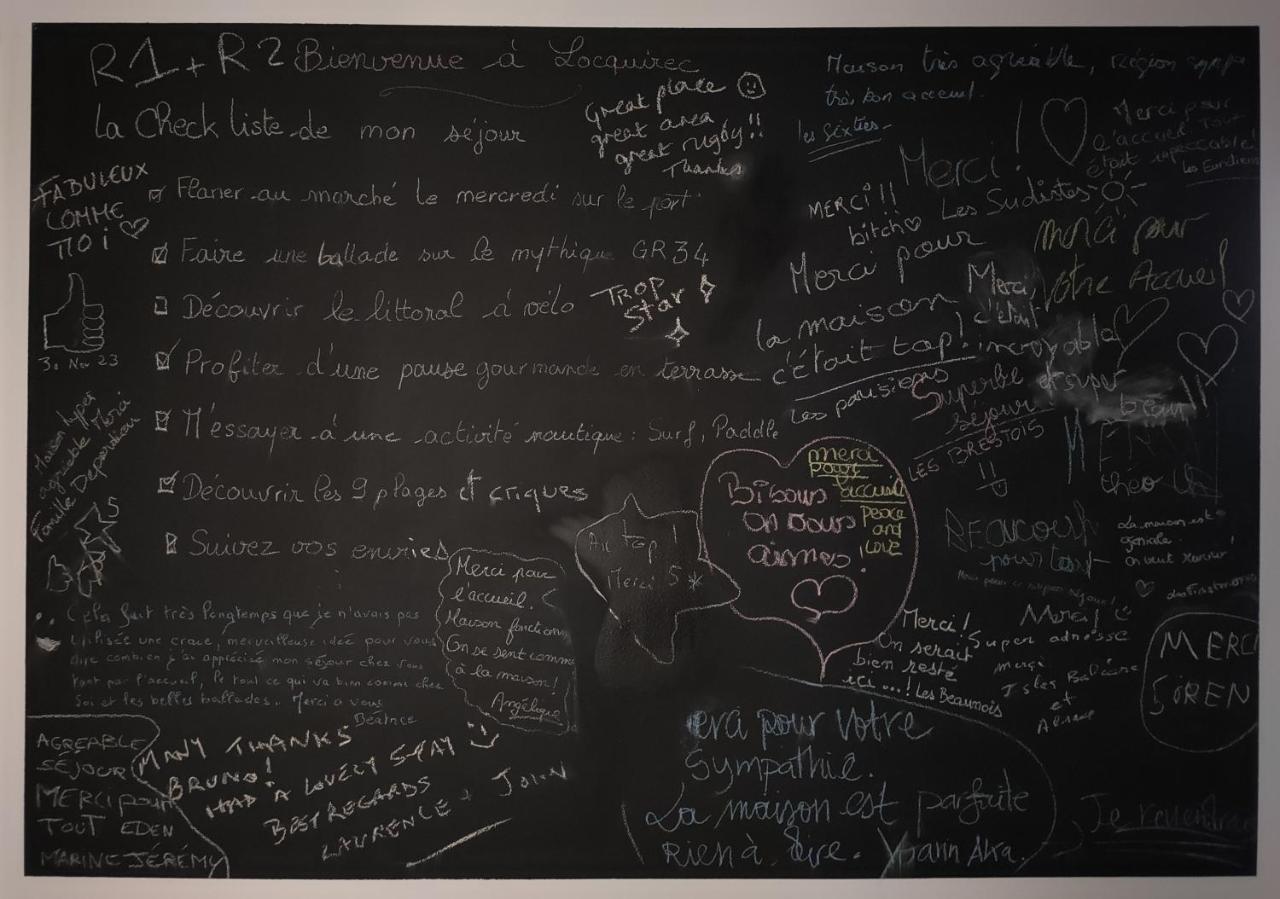 R1 + R2 Bienvenue à Locquirec
La Check liste de mon séjour
Flaner au marché le mercredi sur le port
Faire une ballade sur le mythique GR34
Découvrir le littoral à vélo
Profiter d'une pause gourmande en terrasse
M'essayer à une activité nautique : Surf, Paddle
Découvrir les 9 plages et criques
Suivez vos envies
FABULEUX
COMME
TOI
30 Nov 23
Maison hyper
agréable Merci
Famille
5
Great place
great area
great rugby!!
Thanks
TROP
Star
Maison très agréable, région sympa
très bon accueil.
les Sixties
Merci !
Les Sudistes
Merci pour
l'accueil. Tout
était impeccable!
MERCI !!
bitch
Merci pour
la maison
c'était top !
Les parisiens
merci pour
votre Accueil
Merci
c'était
incroyable
et super
beau
Superbe
séjour
LES BRESTOIS
théo
BEAUCOUP
pour tout
La maison est
géniale
on veut revenir !
Bisous
on vous
aimes !
merci
pour
accueil
Peace
and
Love
Au top !
Merci 5 *
Merci pour
l'accueil.
Maison fonction
On se sent comme
à la maison !
Angélique
Cela fait très longtemps que je n'avais pas
utilisée une craie, merveilleuse idée pour vous
dire combien j'ai appréciée mon séjour chez vous
tant par l'accueil, le tout ce qui va bien comme chez
soi et les belles ballades. Merci à vous
Béatrice
Merci !
On serait
bien resté
ici...! Les Beaumois
Merci
Super adresse
merci
et
MERCI
SIREN
AGREABLE
SÉJOUR
MERCI pour
TOUT EDEN
MARINE JÉRÉMY
MANY THANKS
BRUNO!
HAD A LOVELY STAY
BEST REGARDS
LAURENCE + JOHN
erci pour votre
Sympathie.
La maison est parfaite
Rien à dire. Yoann Aka.
Je reviendrai